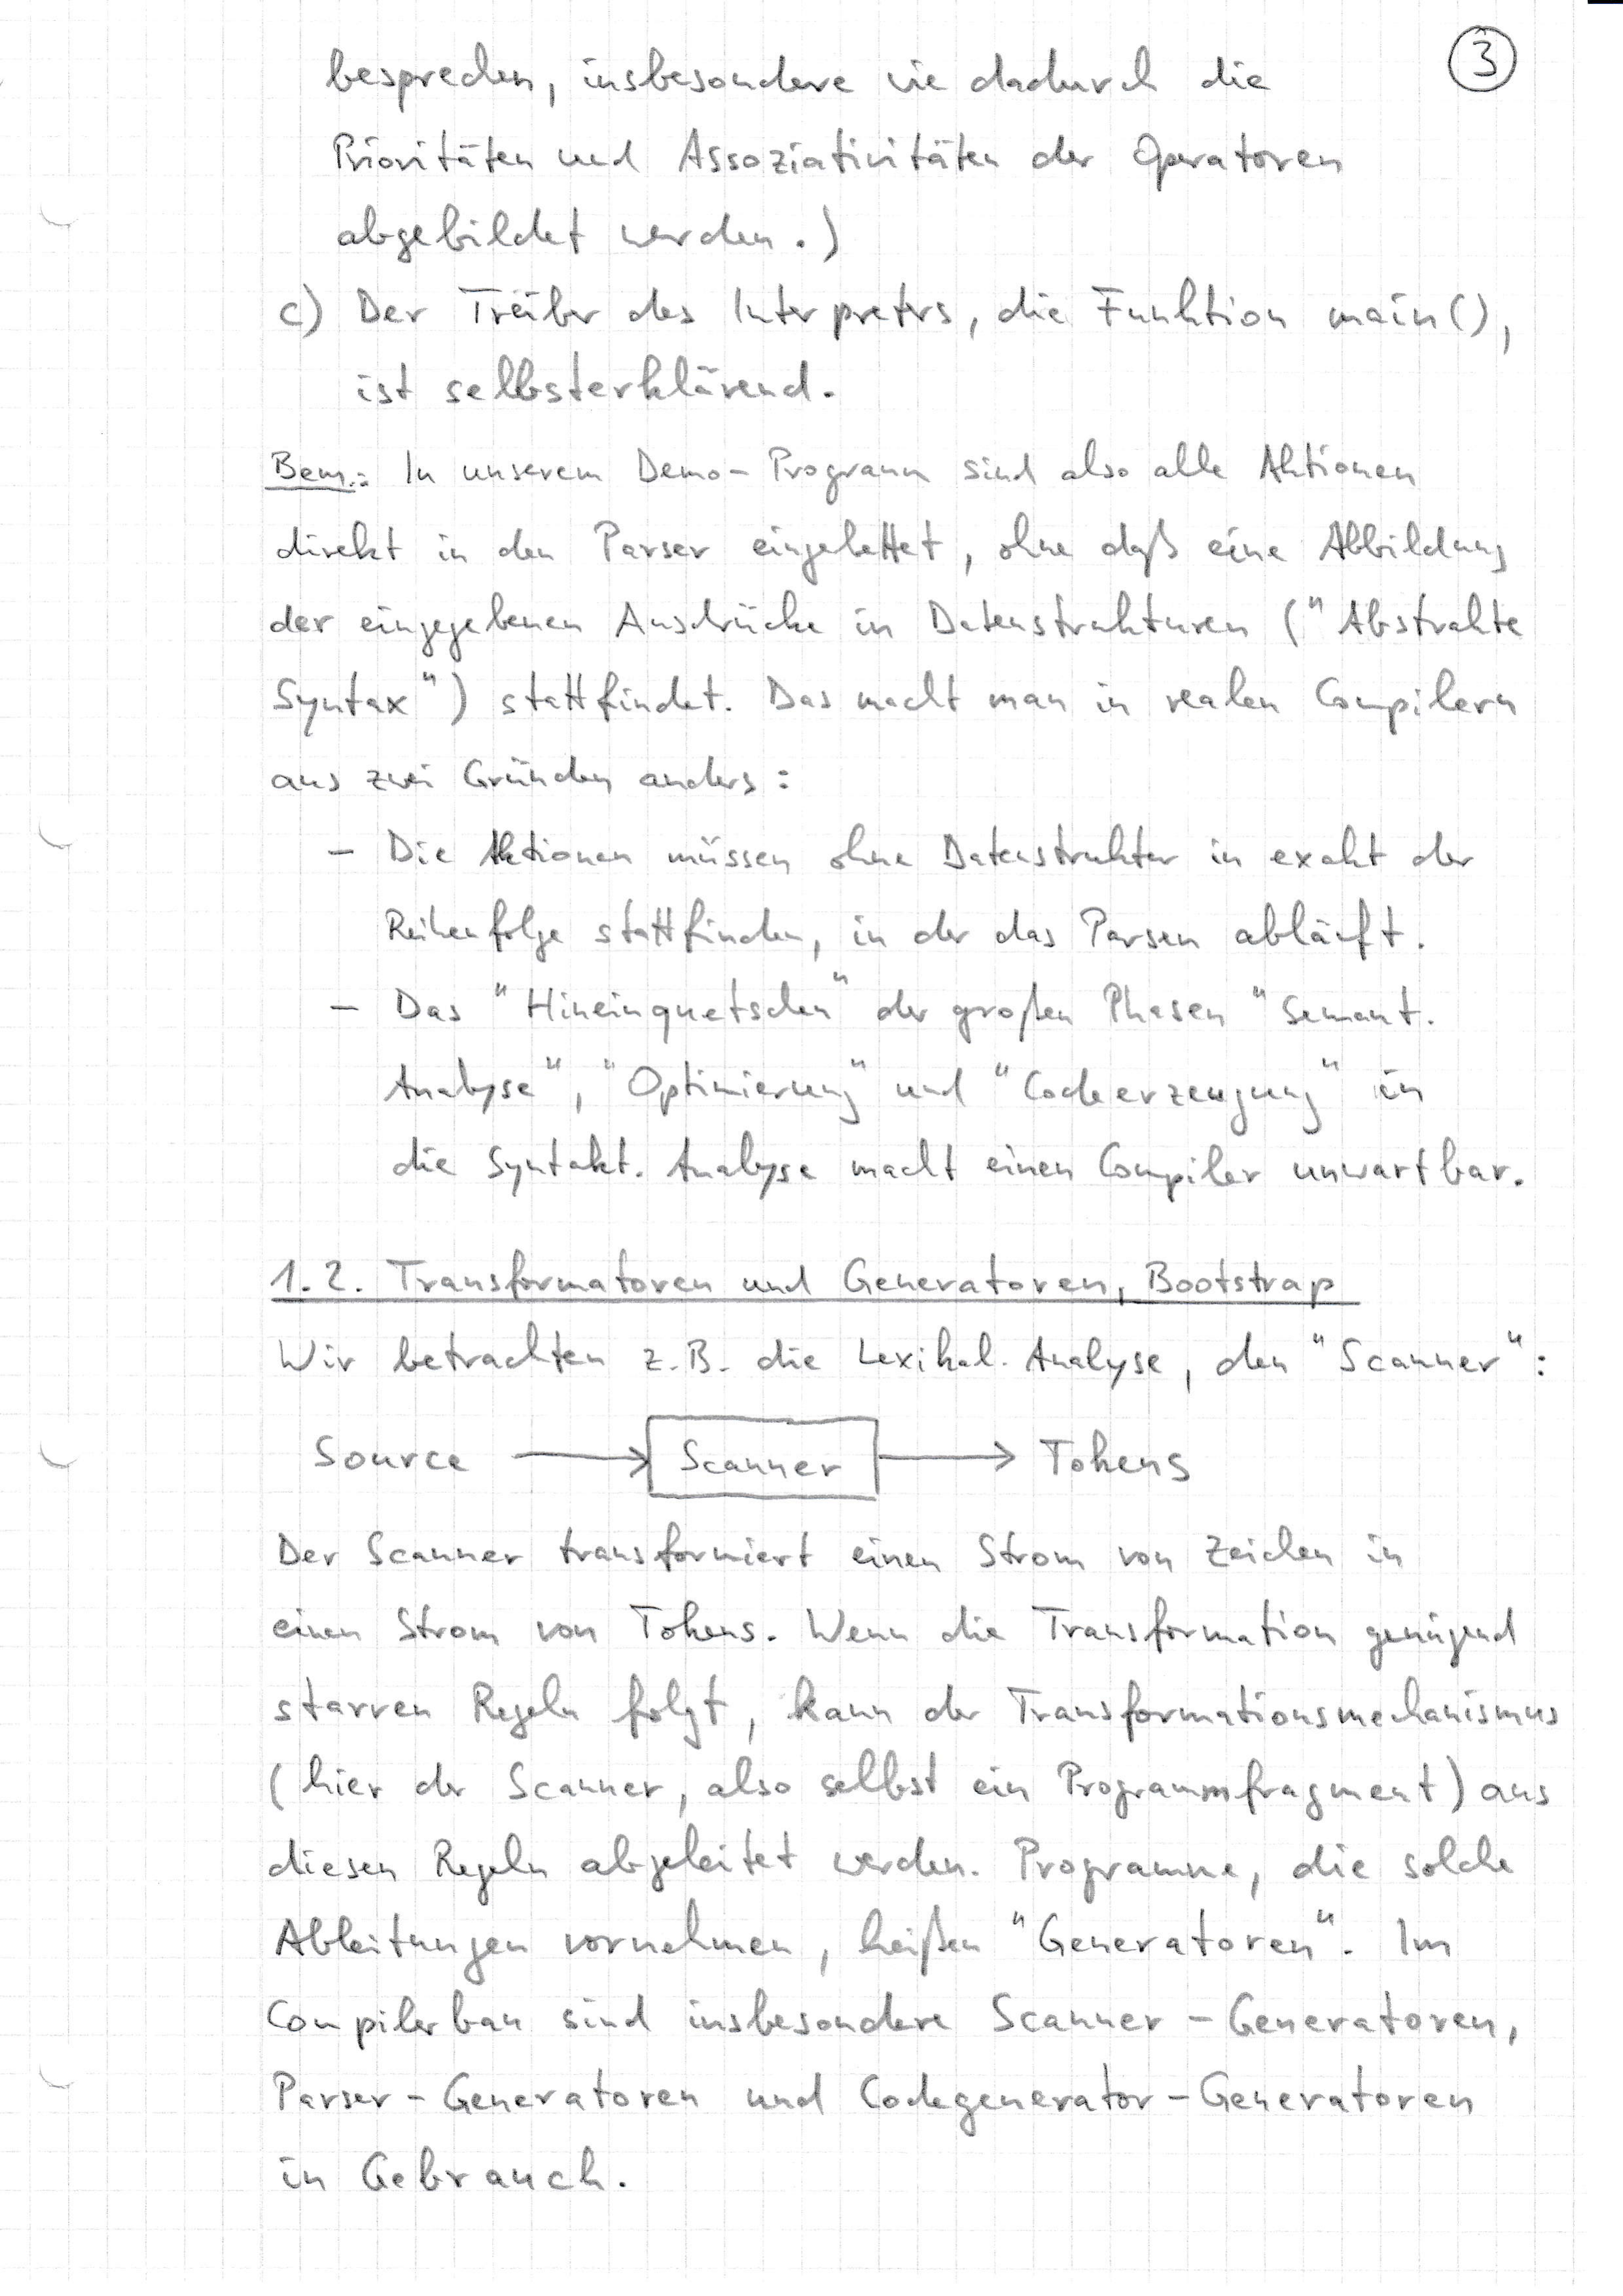 3
besprechen, insbesondere wie dadurch die
Prioritäten und Assoziativitäten der Operatoren
abgebildet werden.)
c) Der Treiber des Interpreters, die Funktion main(),
ist selbsterklärend.
Bem.: In unserem Demo-Programm sind also alle Aktionen
direkt in den Parser eingebettet, ohne daß eine Abbildung
der eingegebenen Ausdrücke in Datenstrukturen ("Abstrakte
Syntax") stattfindet. Das macht man in realen Compilern
aus zwei Gründen anders:
- Die Aktionen müssen ohne Datenstruktur in exakt der
Reihenfolge stattfinden, in der das Parsen abläuft.
- Das "Hineinquetschen" der großen Phasen "Semant.
Analyse", "Optimierung" und "Codeerzeugung" in
die Syntakt. Analyse macht einen Compiler unwartbar.
1.2. Transformatoren und Generatoren, Bootstrap
Wir betrachten z.B. die Lexikal. Analyse, den "Scanner":
Source → Scanner → Tokens
Der Scanner transformiert einen Strom von Zeichen in
einen Strom von Tokens. Wenn die Transformation genügend
starren Regeln folgt, kann der Transformationsmechanismus
(hier der Scanner, also selbst ein Programmfragment) aus
diesen Regeln abgeleitet werden. Programme, die solche
Ableitungen vornehmen, heißen "Generatoren". Im
Compilerbau sind insbesondere Scanner-Generatoren,
Parser-Generatoren und Codegenerator-Generatoren
in Gebrauch.